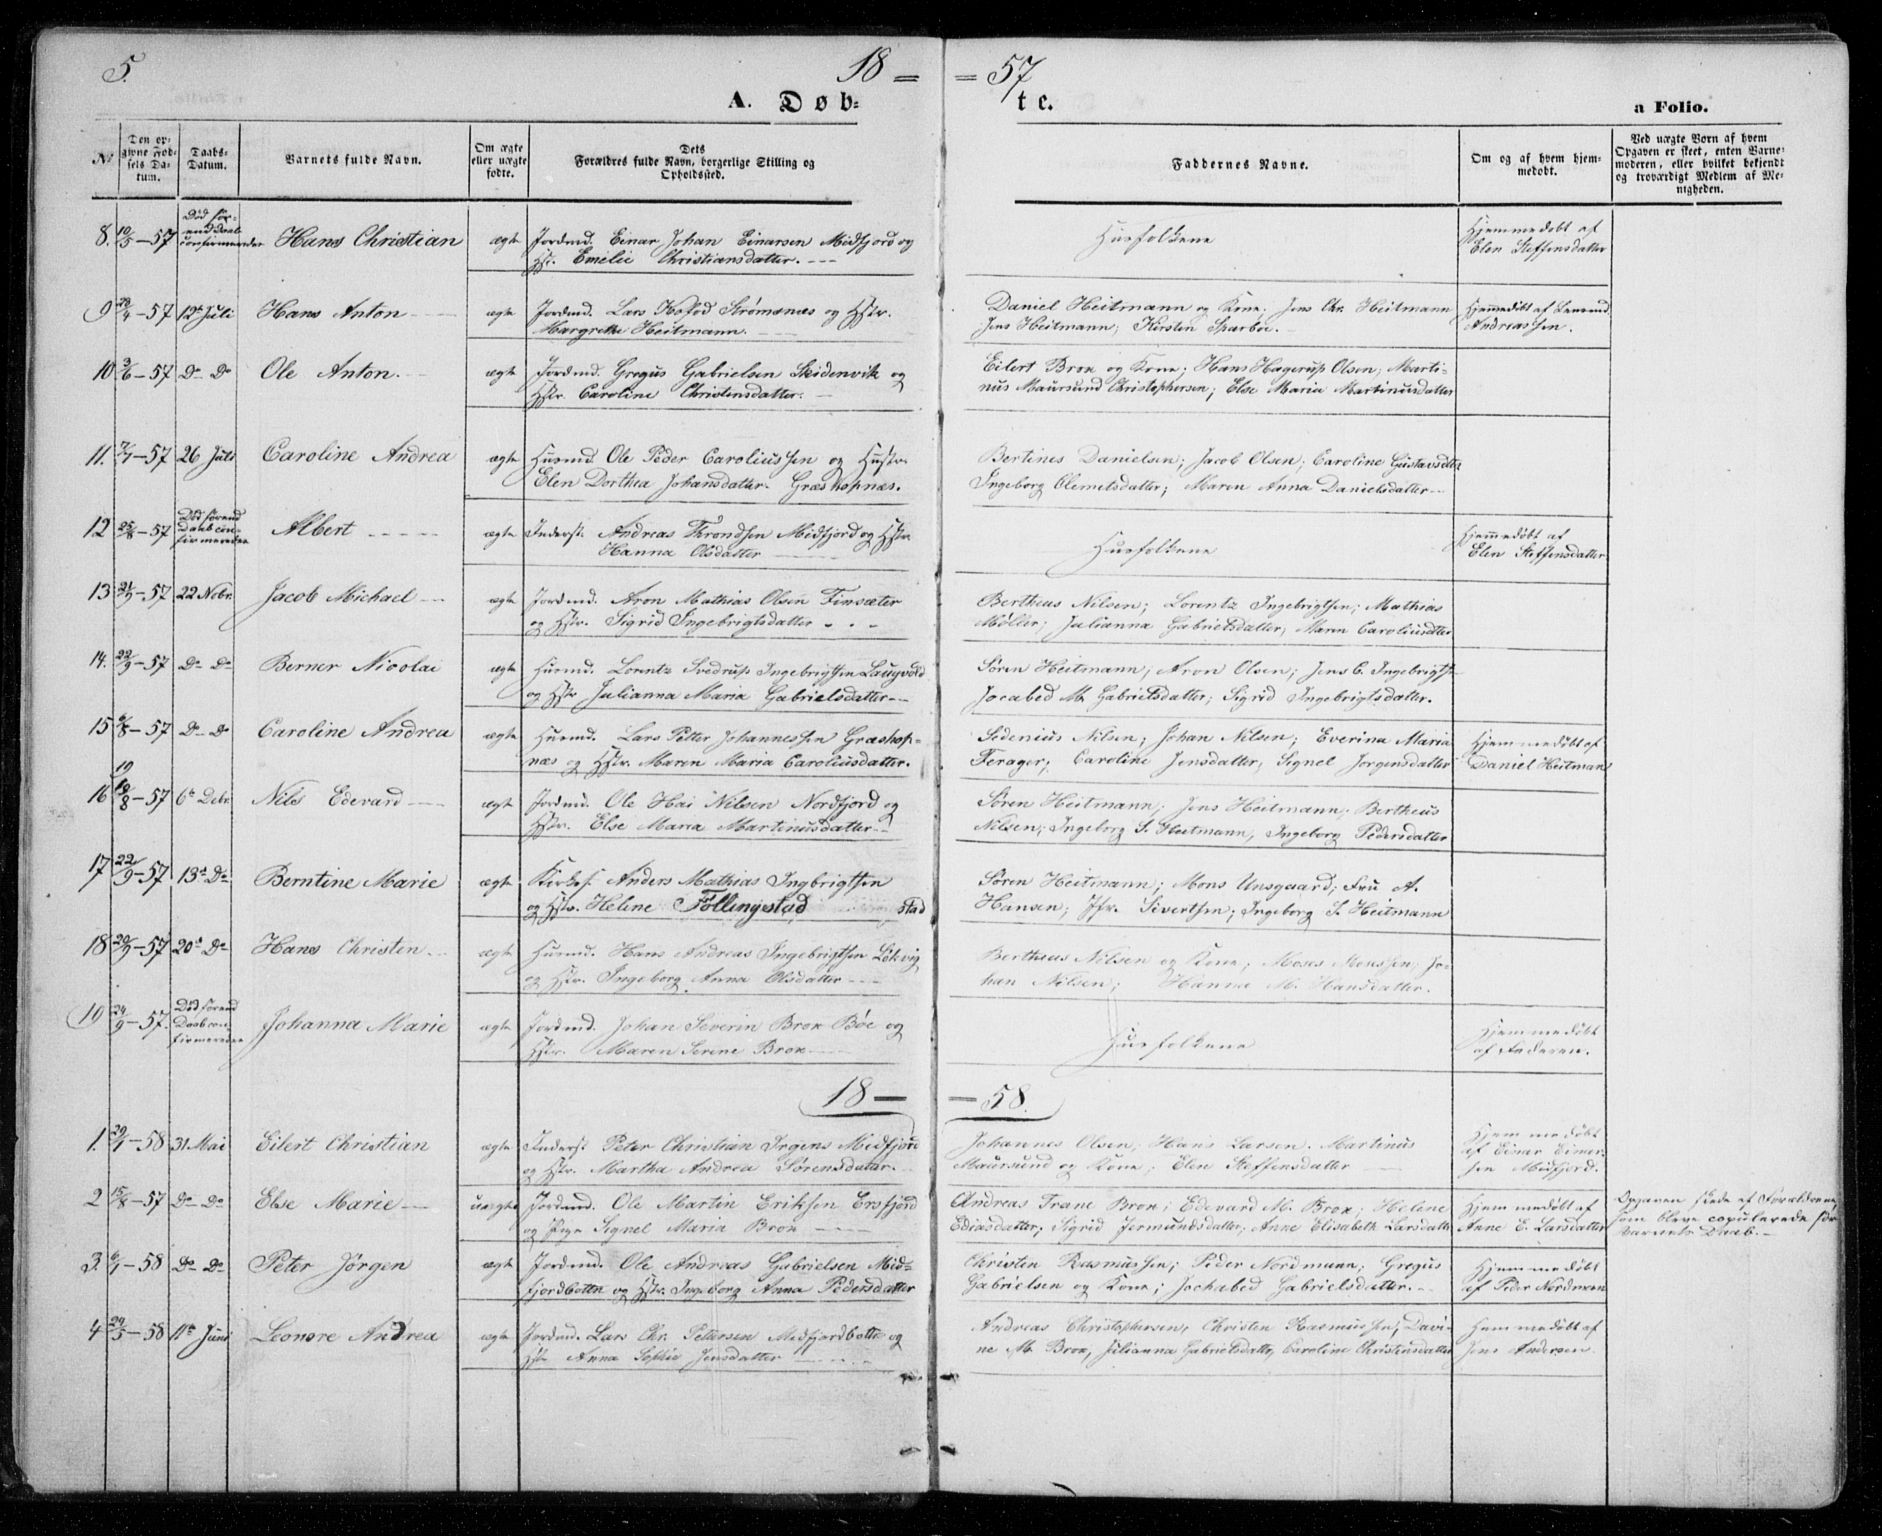 5.
18 =
= 57
A. Døb=
te.
a Folio.
No
Den op=
givne Fød=
sels Da=
tum.
Daabs=
Datum.
Barnets fulde Navn.
Om ægte
eller uægte
fødte.
Dets
Forældres fulde Navn, borgerlige Stilling og
Opholdssted.
Faddernes Navne.
Om og af hvem hjem=
medøbt.
Ved uægte Børn af hvem
Opgaven er skeet, enten Barne=
moderen, eller hvilket bekjendt
og troværdigt Medlem af Me=
nigheden.
8. 10/5 - 57 Død før=
end Daab
confirmeredes
Hans Christian
ægte
Jordmd. Einar Johan Einarsen Midfjord og
Hst. Emelie Christiansdatter.
Husfolkene
Hjemmedøbt af
Elen Steffensdatter
9 28/4 - 57 12te Juli
Hans Anton
ægte
Jordmd. Lars Kofod Strømsnæs og Hstr.
Margrethe Heitmann.
Daniel Heitmann og Kone; Jens Chr. Heitmann
Jens Heitmann; Kirsten Sparboe.
Hjemmedøbt af
Andreassen.
10 3/6 - 57 Do Do
Ole Anton.
ægte
Jordmd. Gregus Gabrielsen Skidenvik og
Hstr. Caroline Christensdatter.
Eilert Brox og Kone; Hans Hagerup Olsen; Marti=
nus Maursund Christophersen; Else Maria Martinusdatter
11. 7/7 - 57 26 Juli
Caroline Andrea
ægte
Husmd. Ole Peder Caroliussen og Hustr.
Elen Dorthea Johansdatter. Græshopnæs.
Bertines Danielsen; Jacob Olsen; Caroline Gustavsdtr
Ingeborg Clemetsdatter; Maren Anna Danielsdatter
12 25/8 - 57 Død førend
Daab con=
firmeredes
Albert
ægte
Inderst. Andreas Throndsen Midfjord og Hstr.
Hanna Olsdatter
Husfolkene
Hjemmedøbt af
Elen Steffensdatter
13 21/9 - 57 22 Nobr.
Jacob Michael
ægte
Jordmd. Aron Mathias Olsen Finsæter
og Hstr. Sigrid Ingebrigtsdatter
Bertheus Nilsen; Lorentz Ingebrigtsen; Mathias
Møller; Julianna Gabrielsdatter; Maren Caroliusdtter
14. 22/9 - 57 Do Do
Berner Nicolai
ægte
Husmd. Lorentz Svedrup Ingebrigtsen Laugvold
og Hstr Julianna Maria Gabrielsdatter
Søren Heitmann; Aron Olsen; Jens C. Ingebrigtsn
Jocabed M. Gabrielsdatter; Sigrid Ingebrigtsdatter.
15 6/8 - 57 Do Do
Caroline Andrea
ægte
Husmd. Lars Petter Johannessen Græshop=
næs og Hstr. Maren Maria Caroliusdatter.
Sedenius Nilsen; Johan Nilsen; Everina Maria
Ferager; Caroline Jensdatter; Signel Jørgensdatter
Hjemmedøbt af
Daniel Heitmann
16 19/8 - 57 6te Debr.
Nils Edevard
ægte
Jordmd. Ole Hai Nilsen Nordfjord og
Hstr. Else Maria Martinusdatter
Søren Heitmann; Jens Heitmann; Bertheus
Nilsen; Ingeborg S. Heitmann, Ingeborg Pedersdatter
17 22/9 - 57 13de Do
Berntine Marie
ægte
Kirkes. Anders Mathias Ingbrigtsen
og Hstr. Heline Føllingstad stad
Søren Heitmann; Mons Unsgaard; Fru A.
Hansen; Jfr. Sivertsen; Ingeborg S. Heitmann
18 20/9 - 57 20de Do
Hans Christen
ægte
Husmd. Hans Andreas Ingebrigtsen Løkvig
og Hstr. Ingeborg Anna Olsdatter
Bertheus Nilsen og Kone; Moses Mosessen; Jo=
han Nilsen; Hanna M. Hansdatter.
19 24/9 - 57. Død førend
Daab con=
firmeredes
Johanna Marie
ægte
Jordmd. Johan Severin Brox Bøe og
Hstr. Maren Serine Brox
Husfolkene
Hjemmedøbt
af Faderen.
18 —
— 58.
1. 29/1 - 58 31 Mai
Eilert Christian
ægte
Inderst. Peter Christian Irgens Midfjord
og Hstr. Martha Andrea Sørensdatter.
Johannes Olsen; Hans Larsen. Martinus
Maursund og Kone; Elen Steffensdatter
Hjemmedøbt
af Einar Einar=
sen Midfjord.
2 15/8 - 57 Do Do
Else Marie
uægte
Jordmd. Ole Martin Eriksen Ersfjord
og Pige Signel Maria Brox
Andreas Trane Brox; Edevard M. Brox; Heline
Ediasdatter; Sigrid Jermundsdatter; Anne Elisabeth Larsdatter
Hjemmedøbt af
Anne E. Larsdatter
Opgaven skede af Forældrene,
som bleve copulerede før
Barnets Daab.
3. 6/1 - 58 Do Do
Peter Jørgen
ægte
Jordmd. Ole Andreas Gabrielsen Mid=
fjordbotten og Hstr. Ingeborg Anna Pedersdatter
Christen Rasmussen; Peder Nordmann; Gregus
Gabrielsen og Kone; Jochabed Gabrielsdatter.
Hjemmedøbt
af Peder Nordmann
4 29/5 - 58 11te Juni
Leonore Andrea
ægte
Jordmd. Lars Chr. Pettersen Midfjordbotten og
Hstr Anna Sophie Jensdatter
Andreas Christophersen, Christen Rasmussen; Davi=
ne M. Brox, Julianna Gabrielsdatter, Caroline Christensdatter
Hjemmedøbt af
Jens Andersen.